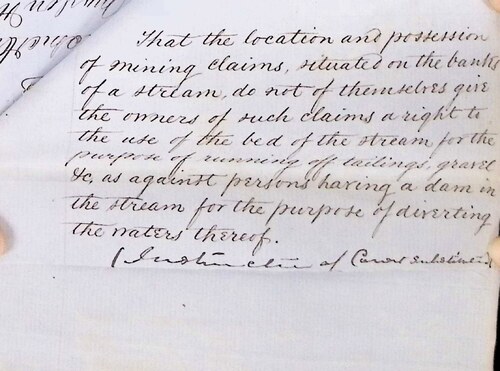 That the location and possession
of mining claims, situated on the banks
of a stream, do not of themselves give
the owners of such claims a right to
the use of the bed of the stream for the
purpose of running off tailings, gravel
&c, as against persons having a dam in
the stream for the purpose of diverting
the waters thereof.
(Instruction of Court